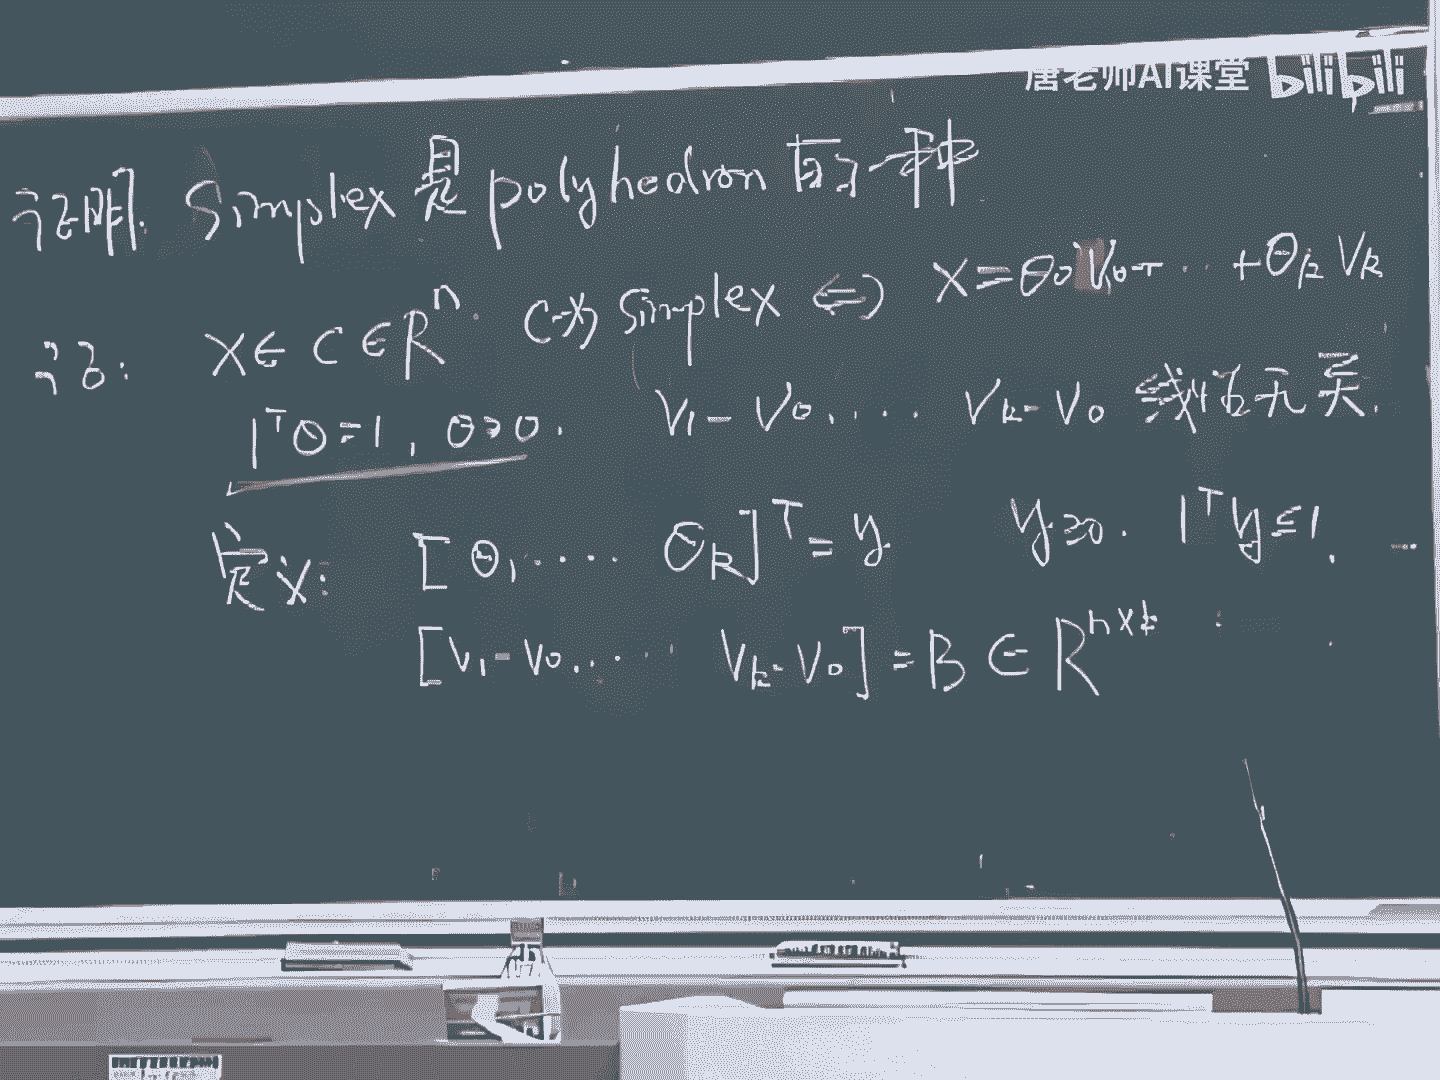 唐老师AI课堂 bilibili
证明. Simplex 是 polyhedron 的一种
证: X∈C∈Rⁿ. C为 Simplex ⇔ X=θ₀V₀+⋯+θₖVₖ
1ᵀθ=1, θ≥0. V₁-V₀.... Vₖ-V₀ 线性无关.
定义: [θ₁.... θₖ]ᵀ=y y≥0. 1ᵀy≤1.
[V₁-V₀..... Vₖ-V₀]=B∈Rⁿˣᵏ